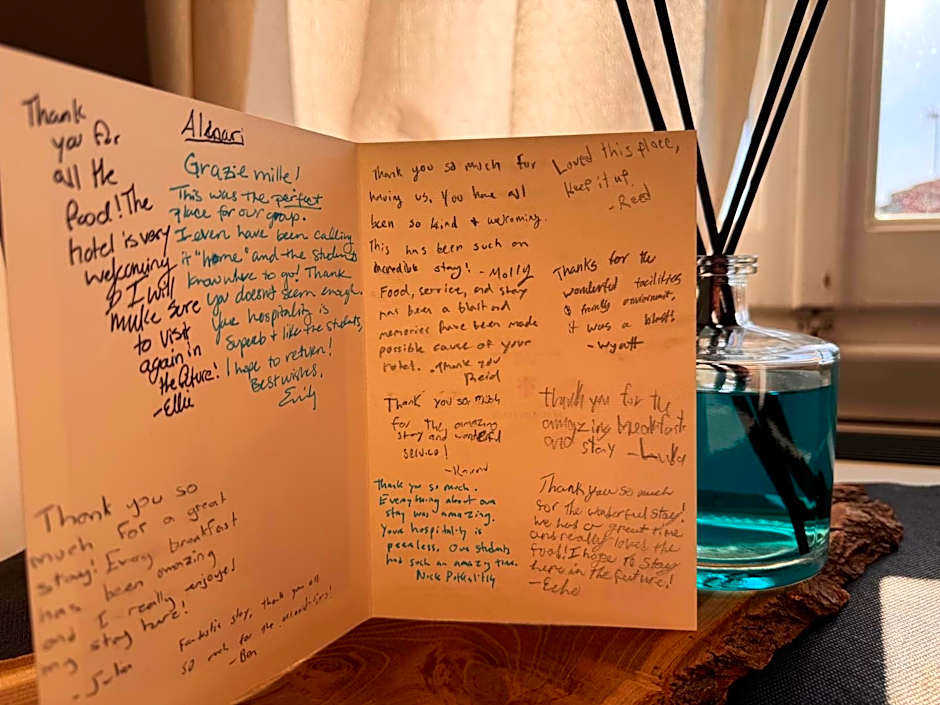 Thank
you for
all the
food! The
hotel is very
welcoming
so I will
make sure
to visit
again in
the future!
-Ellie
Grazie mille!
This was the perfect
place for our group.
I even have been calling
it "home" and the students
know where to go! Thank
you doesn't seem enough.
Your hospitality is
superb + like the students,
I hope to return!
Best wishes,
Emily
Thank you so
much for a great
stay! Every breakfast
has been amazing
and I really enjoyed
my stay here!
Fantastic stay, thank you all
so much for the accomodations!
-Ben
Thank you so much for
having us. You have all
been so kind & welcoming.
This has been such an
incredible stay! -Molly
Food, service, and stay
has been a blast and
memories have been made
possible cause of your
hotel. Thank you
Reid
Thank you so much
for the amazing
stay and wonderful
service!
Thank you so much.
Everything about our
stay was amazing.
Your hospitality is
peerless. Our students
had such an amazing time.
Nick
Loved this place,
keep it up.
-Reed
Thanks for the
wonderful facilities
& friendly environment,
it was a blast!
-Wyatt
thank you for the
amazing breakfast
and stay -Luke
Thank you so much
for the wonderful stay.
We has a great time
and really loved the
food! I hope to stay
here in the future!
-Echo